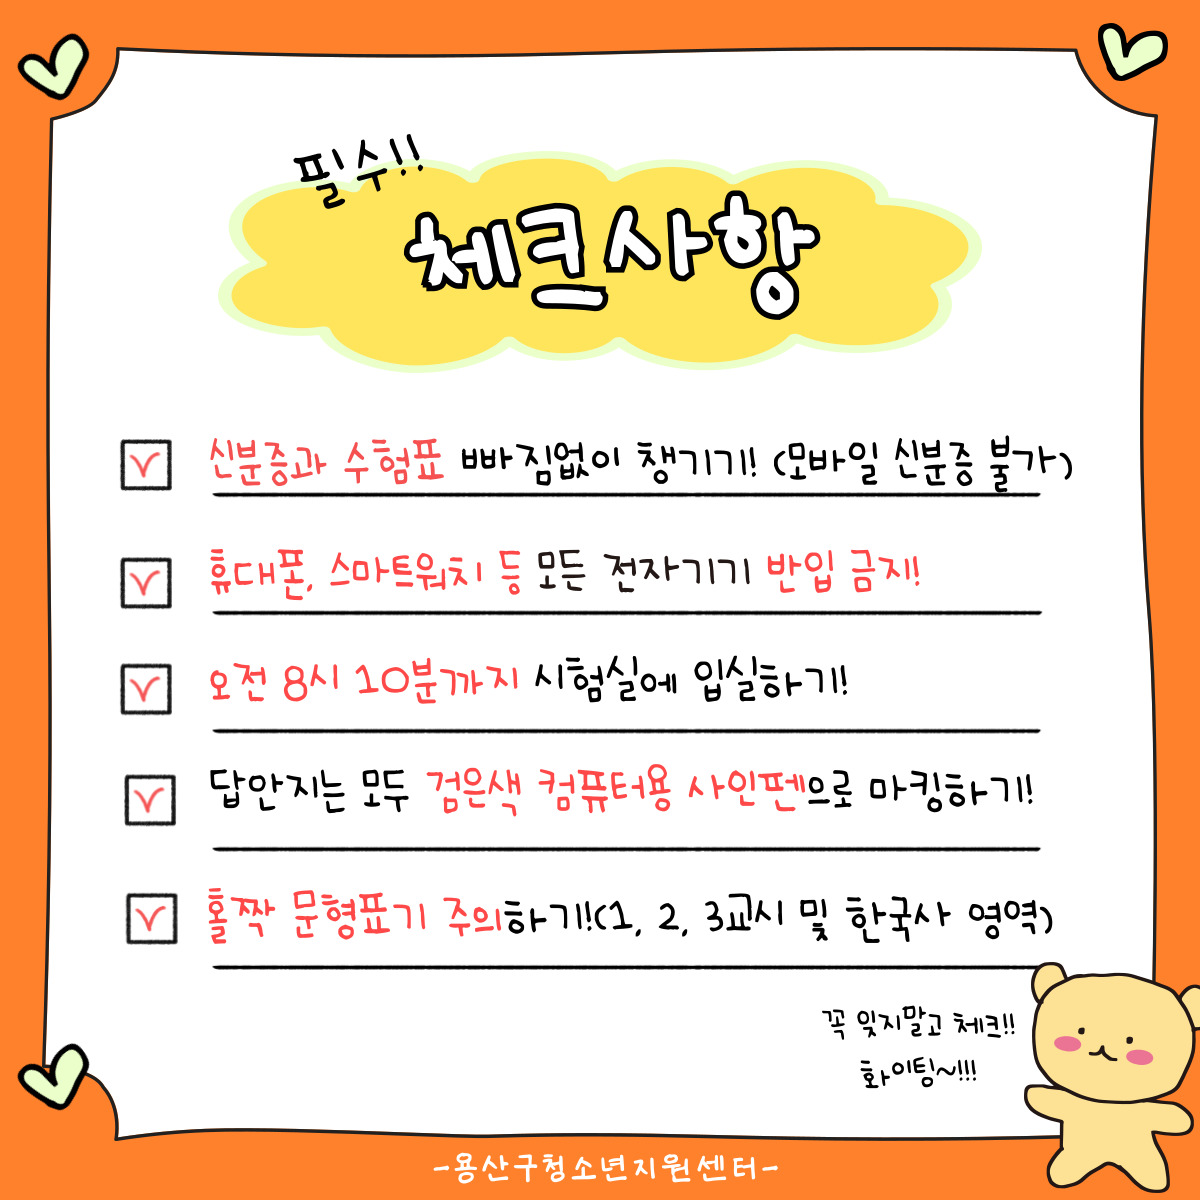 필수!!
체크사항
신분증과 수험표 빠짐없이 챙기기! (모바일 신분증 불가)
휴대폰, 스마트워치 등 모든 전자기기 반입 금지!
오전 8시 10분까지 시험실에 입실하기!
답안지는 모두 검은색 컴퓨터용 사인펜으로 마킹하기!
홀짝 문형표기 주의하기!(1, 2, 3교시 및 한국사 영역)
꼭 잊지말고 체크!!
화이팅~!!!
-용산구청소년지원센터-